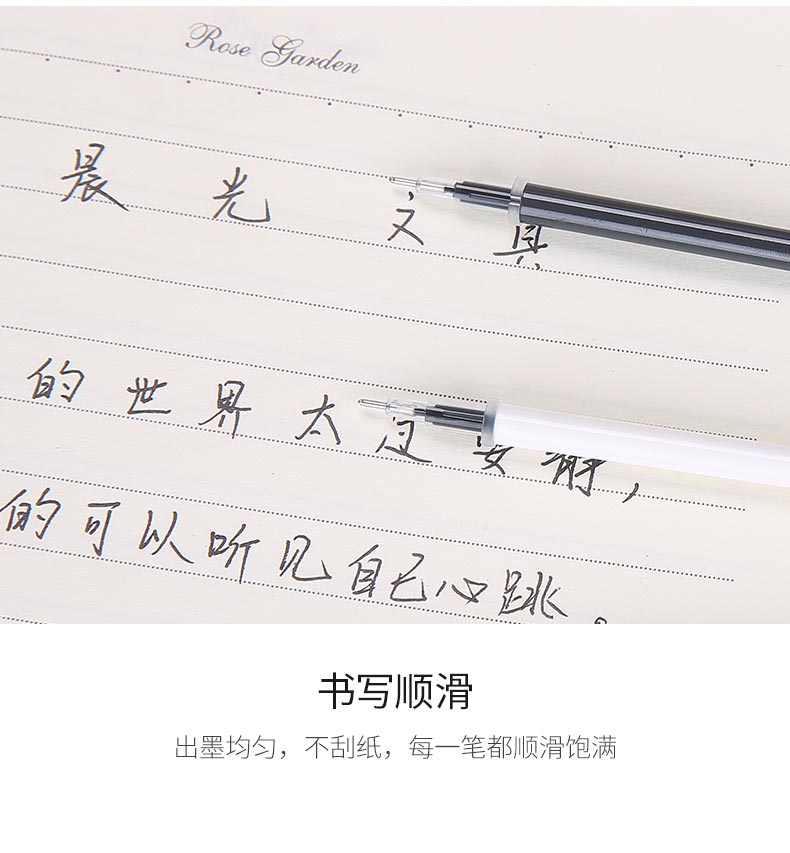 Rose Garden
晨光文具
的世界太过安静,
的可以听见自己心跳。
书写顺滑
出墨均匀，不刮纸，每一笔都顺滑饱满